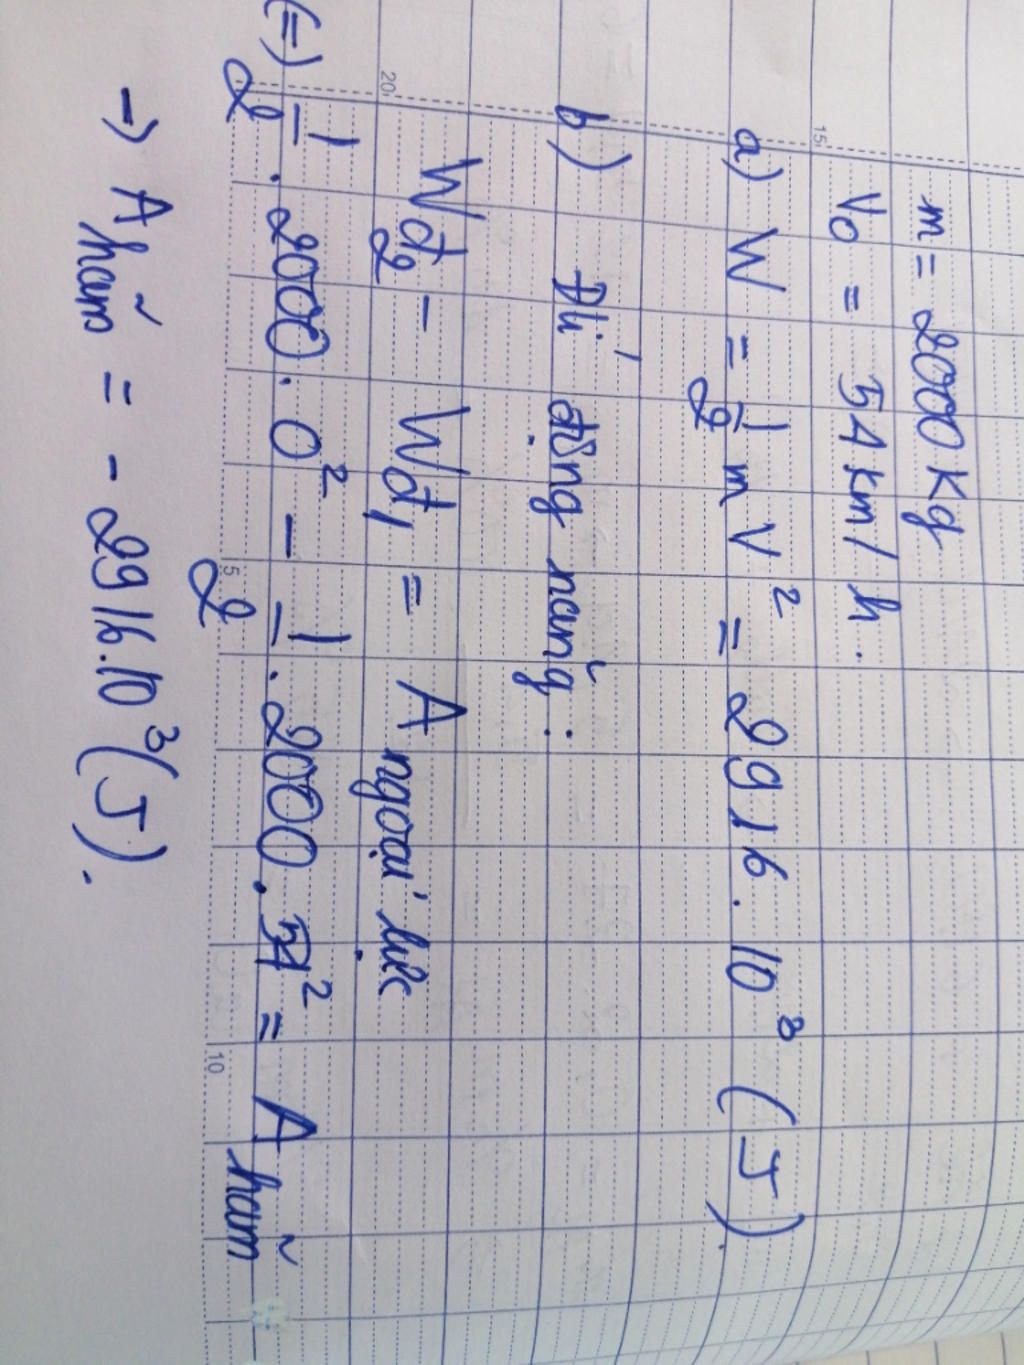 m = 2000 kg
V₀ = 54 km/h.
a) W = 1/2 m V² = 2916.10³ (J).
b) Đlí động năng :
Wđ₂ - Wđ₁ = A ngoại lực
(=) 1/2 . 2000 . 0² - 1/2 . 2000 . 54² = A hãm
→ A hãm = - 2916.10³ (J).
15
20
5
10